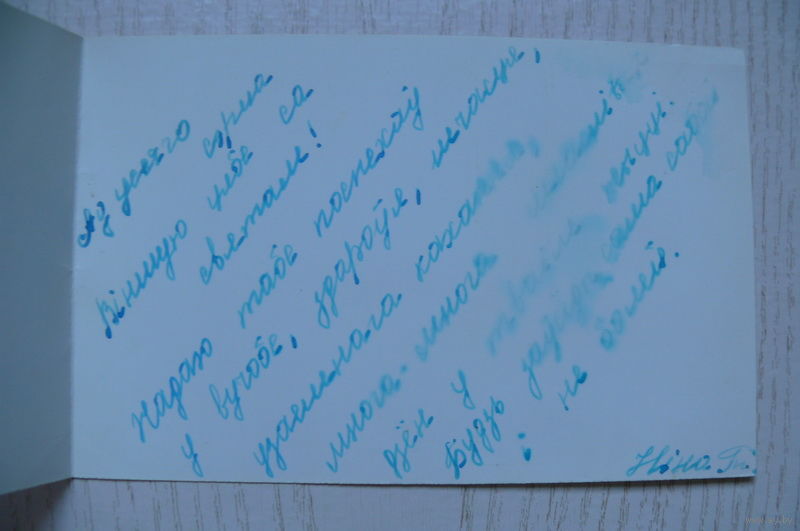 Ад усяго сэрца
Віншую цябе са
святам!
Жадаю табе поспехаў
у вучобе, здароўя, шчасця,
узаемнага кахання,
многа-многа
дзён у тваім жыцці.
Будзь заўсёды сама сабой
і не балей.
Ніна Гп.